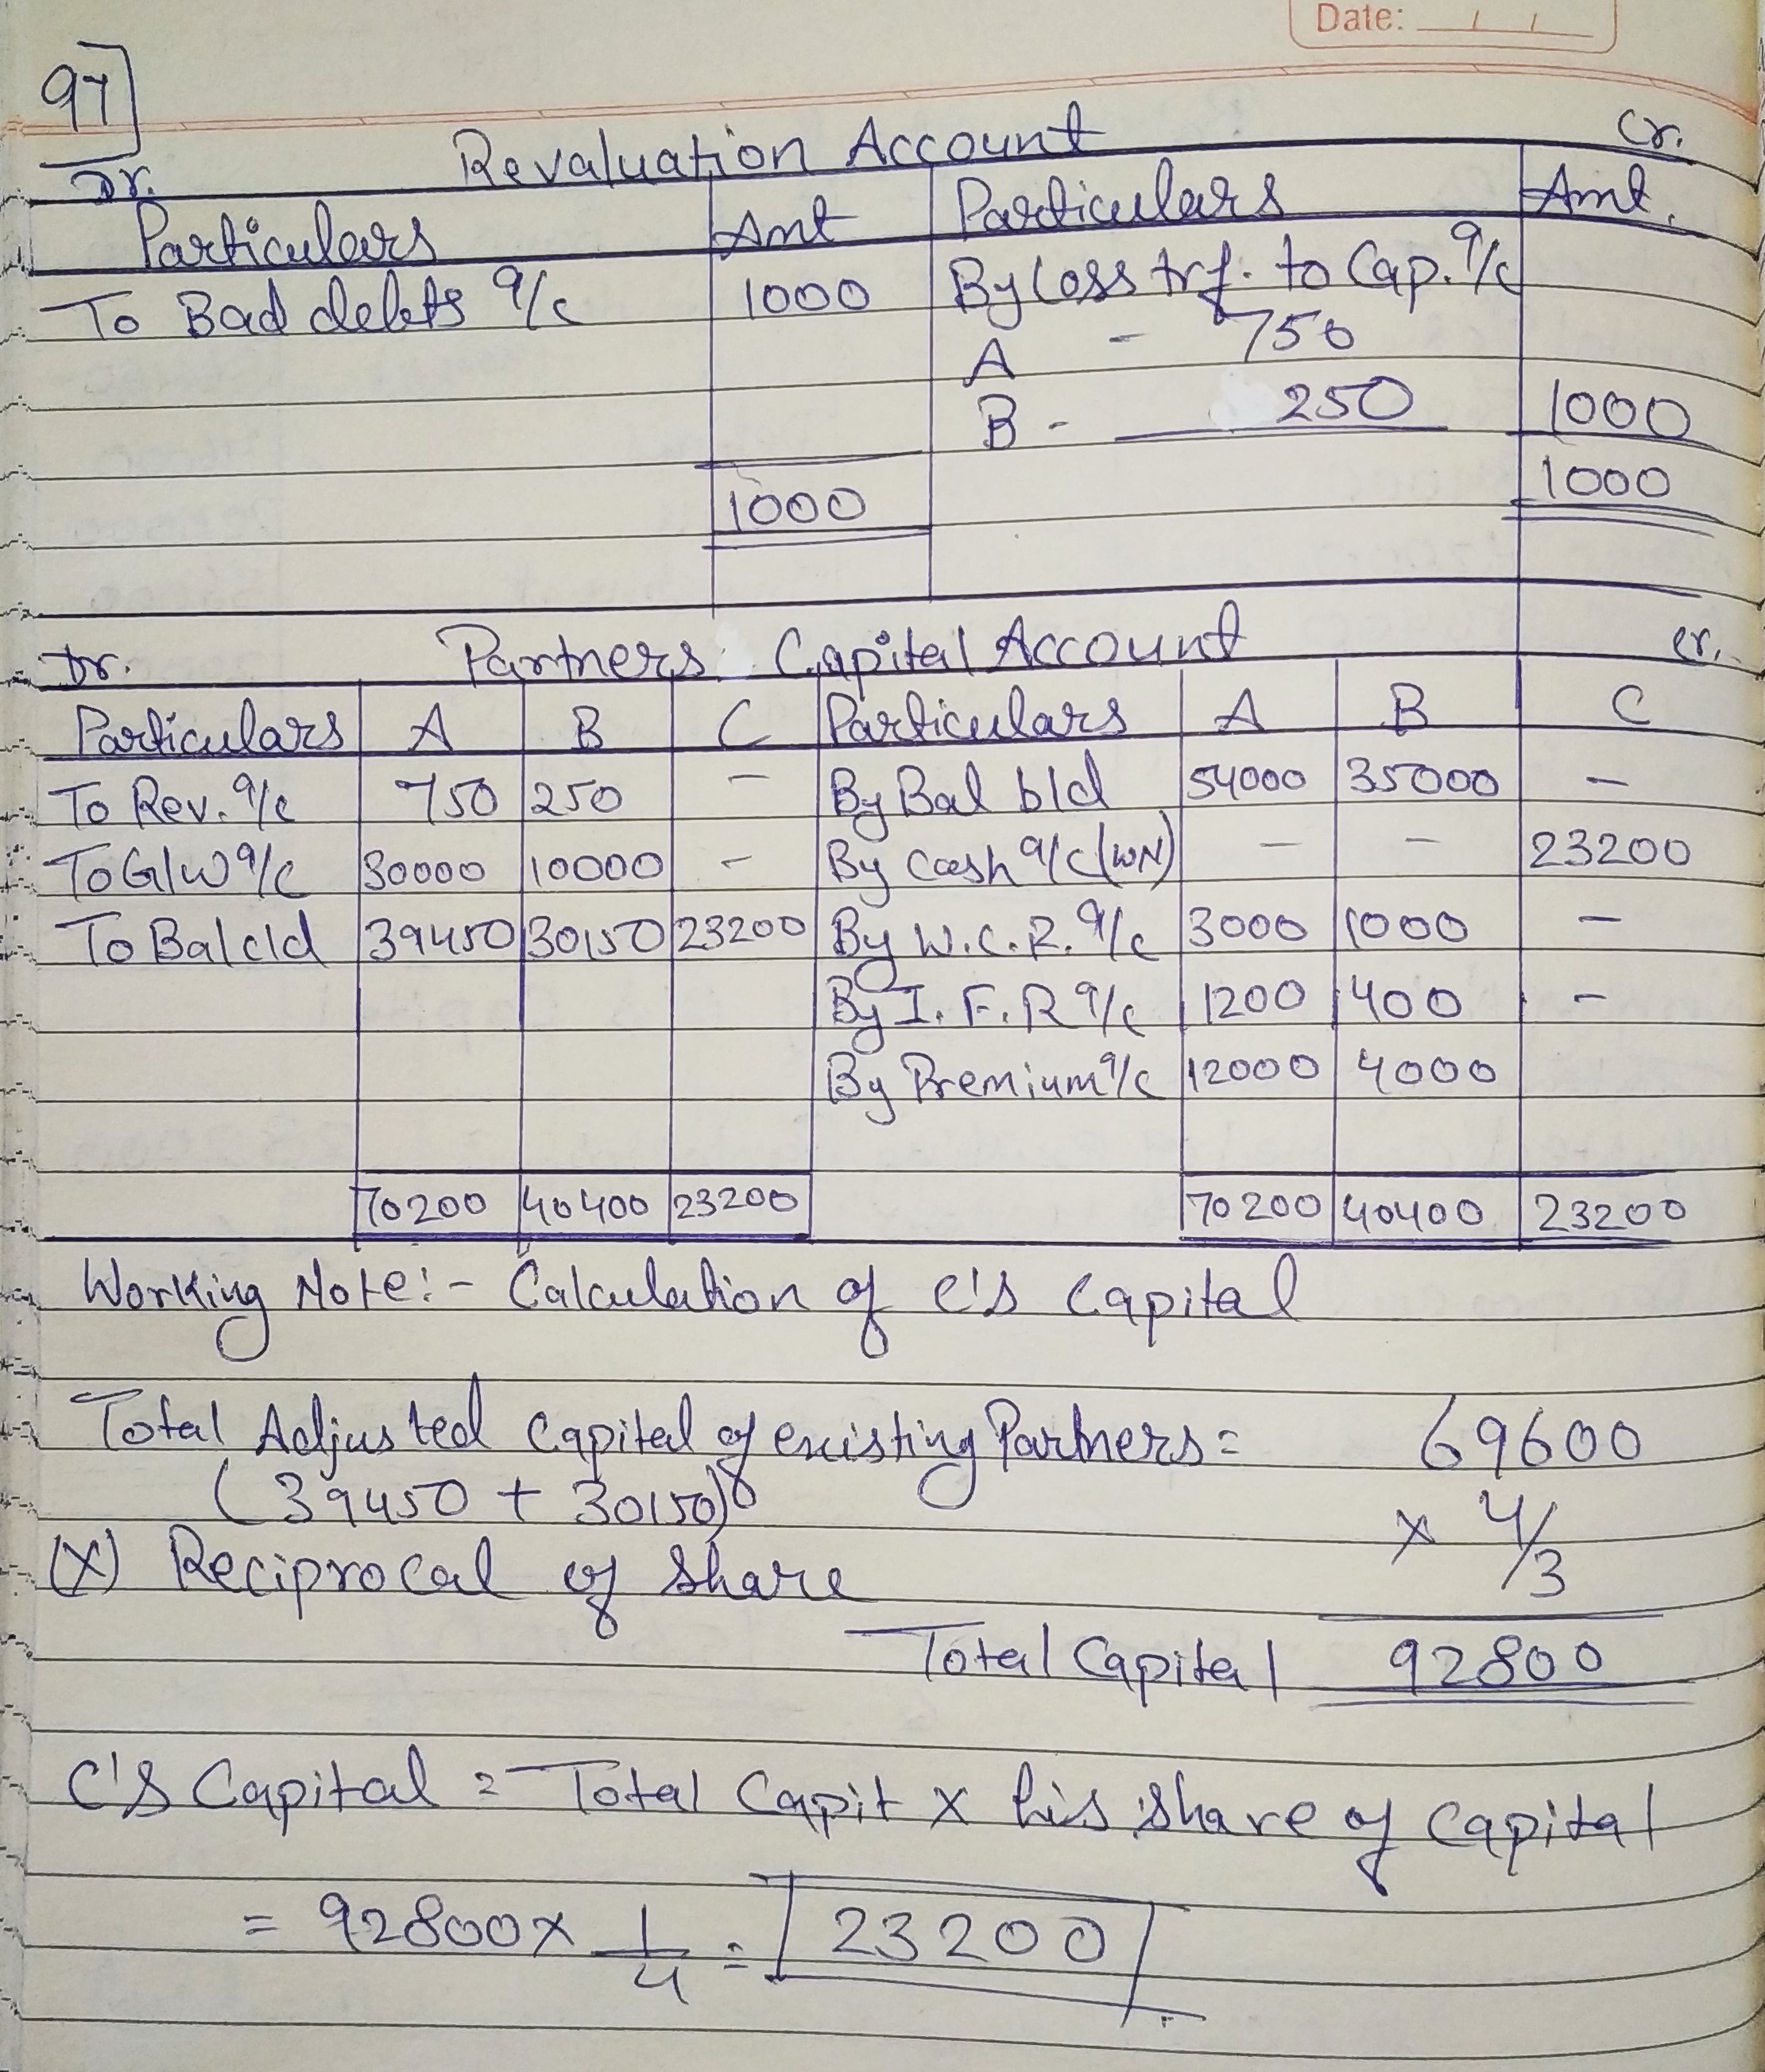 Date: / /
97
Dr. Revaluation Account Cr.
Particulars Amt Particulars Amt.
To Bad debts a/c 1000 By loss trf. to Cap. a/c
A - 750
B - 250 1000
1000 1000
Dr. Partners Capital Account Cr.
Particulars A B C Particulars A B C
To Rev. a/c 750 250 - By Bal b/d 54000 35000 -
To G/W a/c 30000 10000 - By Cash a/c (WN) - - 23200
To Bal c/d 39450 30150 23200 By W.C.R. a/c 3000 1000 -
By I.F.R a/c 1200 400 -
By Premium a/c 12000 4000
70200 40400 23200 70200 40400 23200
Working Note:- Calculation of C's Capital
Total Adjusted Capital of existing Partners = 69600
(39450 + 30150)
(X) Reciprocal of Share × 4/3
Total Capital 92800
C'S Capital = Total Capit x his share of Capital
= 92800 x 1/4 = 23200